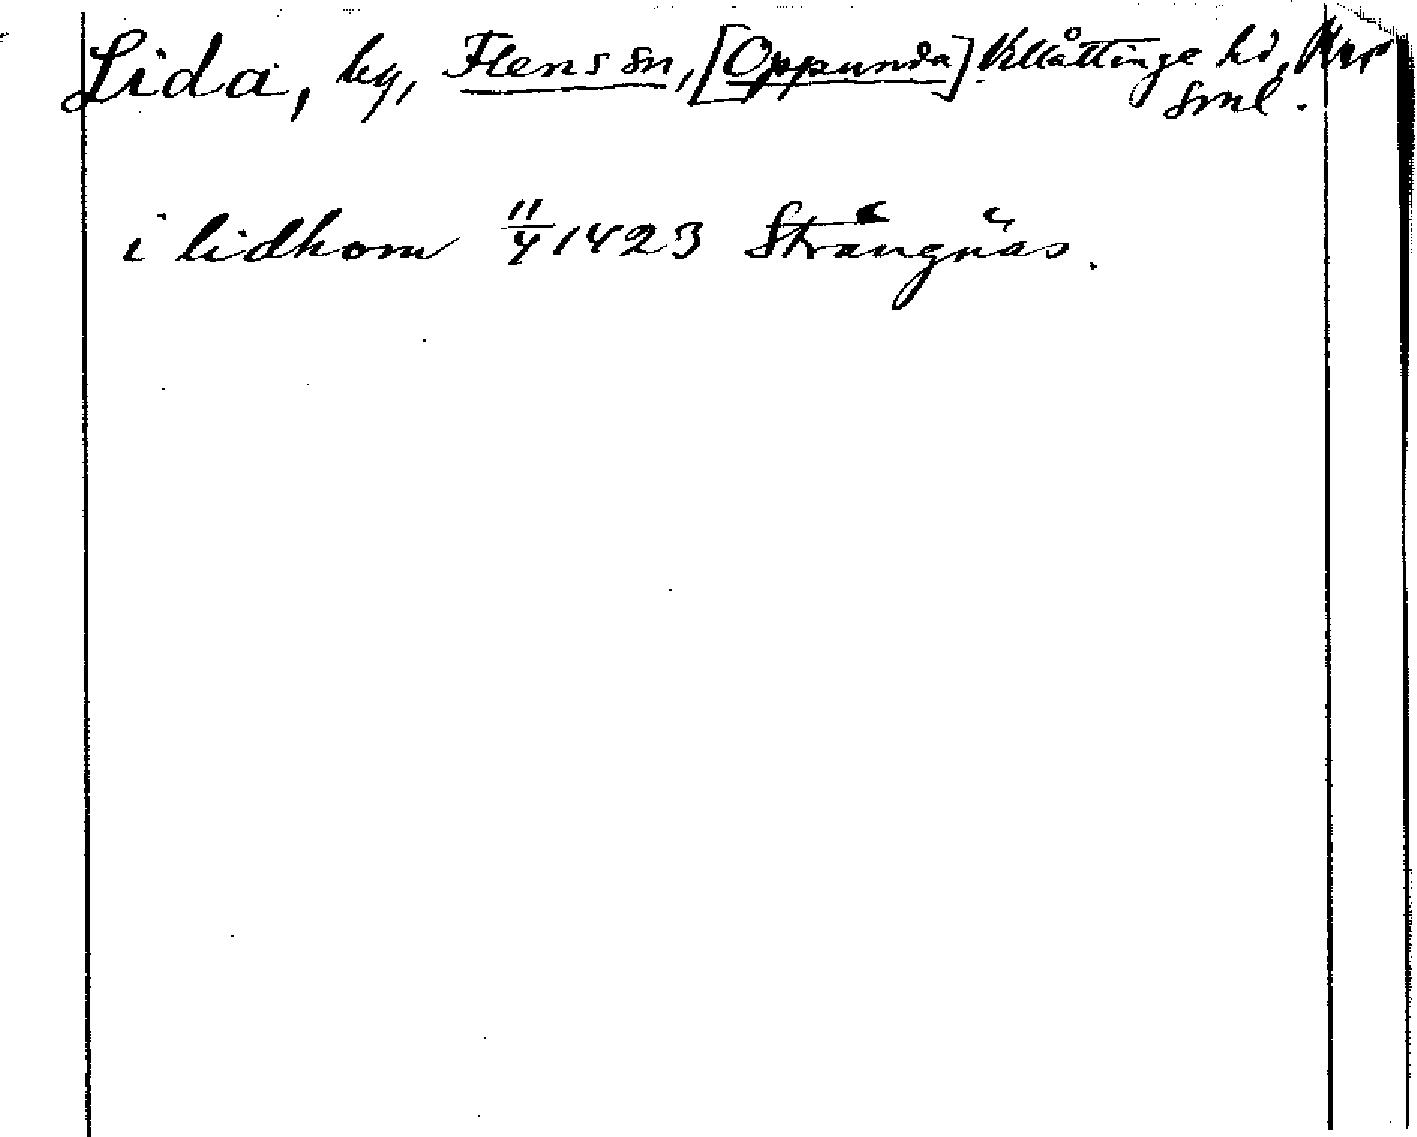 Lida, by, Flens sn, [Oppunda] Villåttinge hd,
Sml.
i lidhom 11/4 1423 Strängnäs.